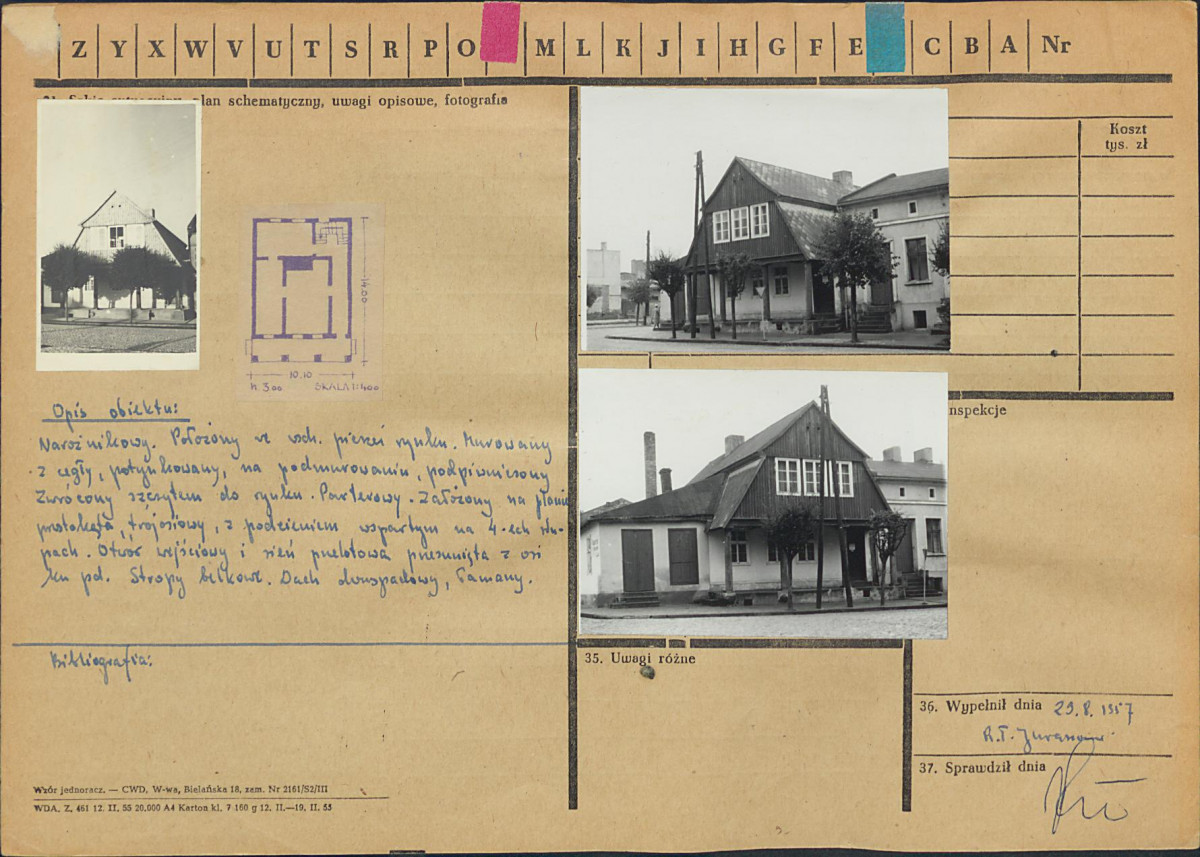 Z Y X W V U T S R P O M L K J I H G F E C B A Nr
plan schematyczny, uwagi opisowe, fotografia
Koszt
tys. zł
14.00
10.10
h. 3.00 SKALA 1:400
Opis obiektu:
Narożnikowy. Położony we wsch. pierzei rynku. Murowany
z cegły, potynkowany, na podmurowaniu, podpiwniczony
Zwrócony szczytem do rynku. Parterowy. Założony na planie
prostokąta, trójosiowy, z podcieniem wspartym na 4-ech słu-
pach. Otwór wejściowy i sień przelotowa przesunięta z osi
ku pd. Stropy belkowe. Dach dwuspadowy, łamany.
Bibliografia:
nspekcje
35. Uwagi różne
36. Wypełnił dnia 29.8.1957
37. Sprawdził dnia
Wzór jednoracz. — CWD, W-wa, Bielańska 18, zam. Nr 2161/S2/III
WDA. Z. 461 12. II. 55 20.000 A4 Karton kl. 7 160 g 12. II.—19. II. 55